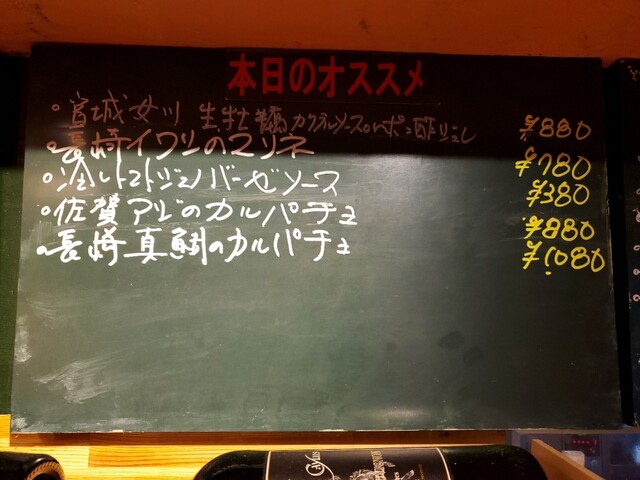 本日のオススメ
・宮城女川 生牡蠣 カクテルソースorポン酢ジュレ ¥880
・長崎イワシのマリネ ¥780
・冷しトマトジェノバーゼソース ¥380
・佐賀アジのカルパチョ ¥880
・長崎真鯛のカルパチョ ¥1080